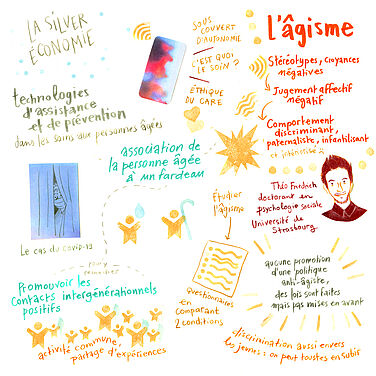 LA SILVER
ÉCONOMIE
technologies
d'assistance
et de prévention
dans les soins aux personnes âgées
SOUS
COUVERT
D'AUTONOMIE
C'EST QUOI
LE SOIN ?
ÉTHIQUE
DU CARE
L'âgisme
Stéréotypes, croyances
négatives
Jugement affectif
négatif
Comportement
discriminant,
paternaliste, infantilisant
et intériorisé ?
association de
la personne âgée
à un fardeau
Le cas du covid-19
Étudier
l'âgisme
questionnaires
en
comparant
2 conditions
doctorant en
psychologie sociale
Université de
Strasbourg
pour y
remédier
Promouvoir les
contacts intergénérationnels
positifs
activité commune,
partage d'expériences
aucune promotion
d'une politique
anti-âgiste,
des lois sont faites
mais pas mises en avant
discrimination aussi envers
les jeunes : on peut toustes en subir